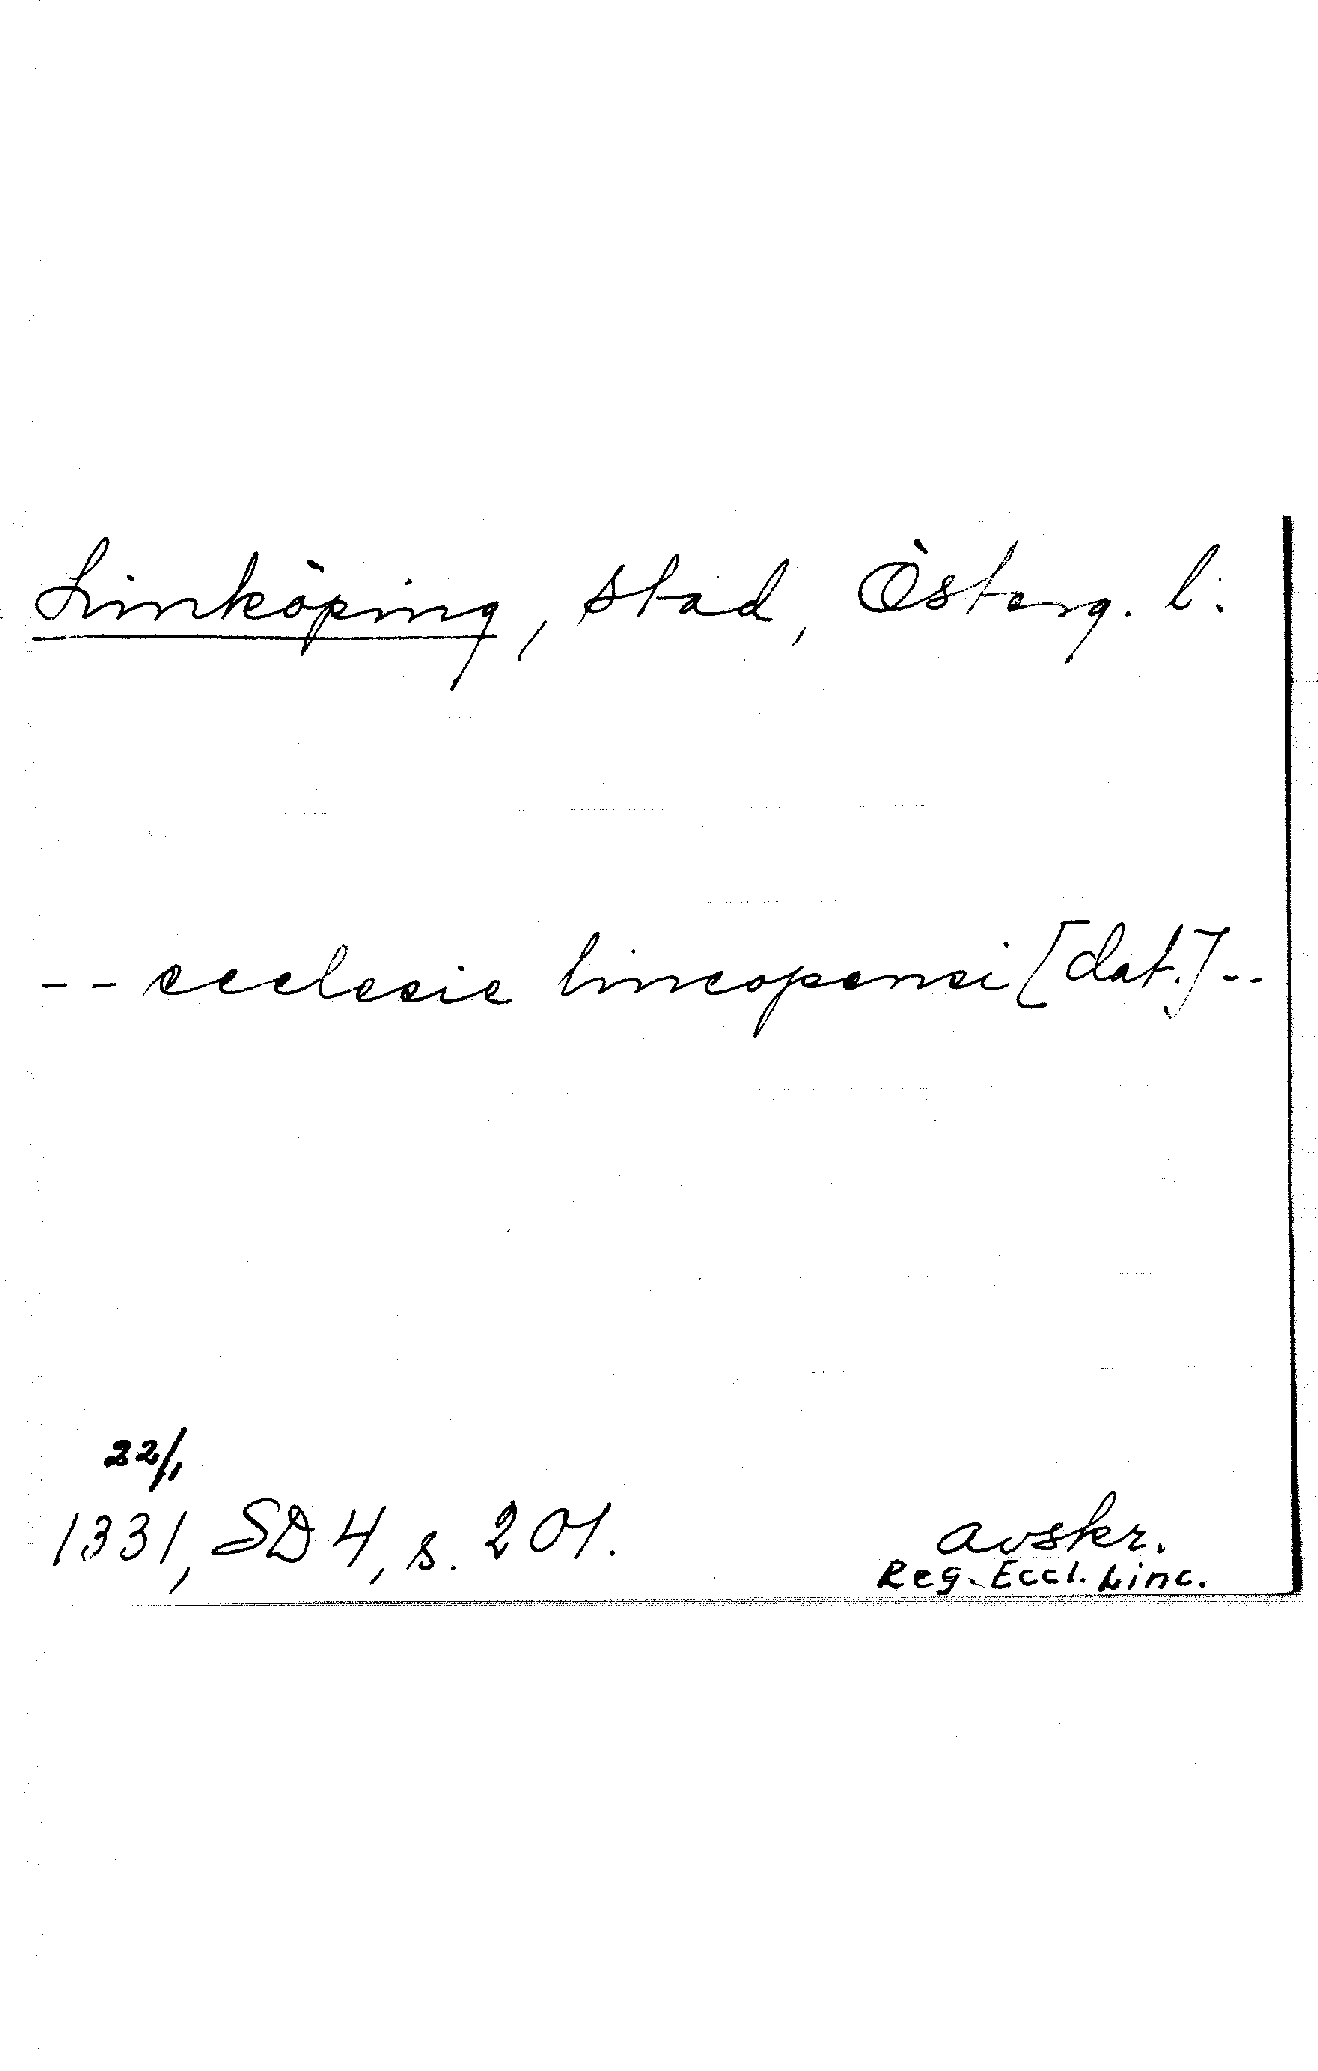 Linköping, stad, Österg. l.
-- ecclesie lincopensi [dat.] --
22/1
1331, SD 4, s. 201.
avskr.
Reg. Eccl. Linc.